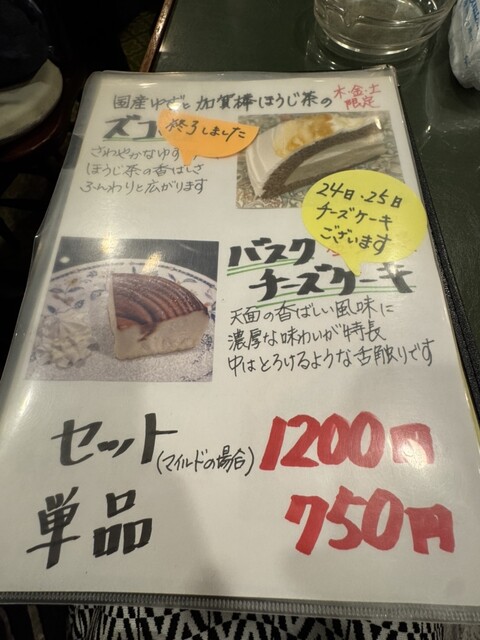 国産ゆずと加賀棒ほうじ茶の
木・金・土
限定
ズコ
終了しました
さわやかなゆず
ほうじ茶の香ばしさ
ふんわりと広がります
24日・25日
チーズケーキ
ございます
バスク
チーズケーキ
天面の香ばしい風味に
濃厚な味わいが特長
中はとろけるような舌触りです
セット(マイルドの場合) 1200円
単品 750円